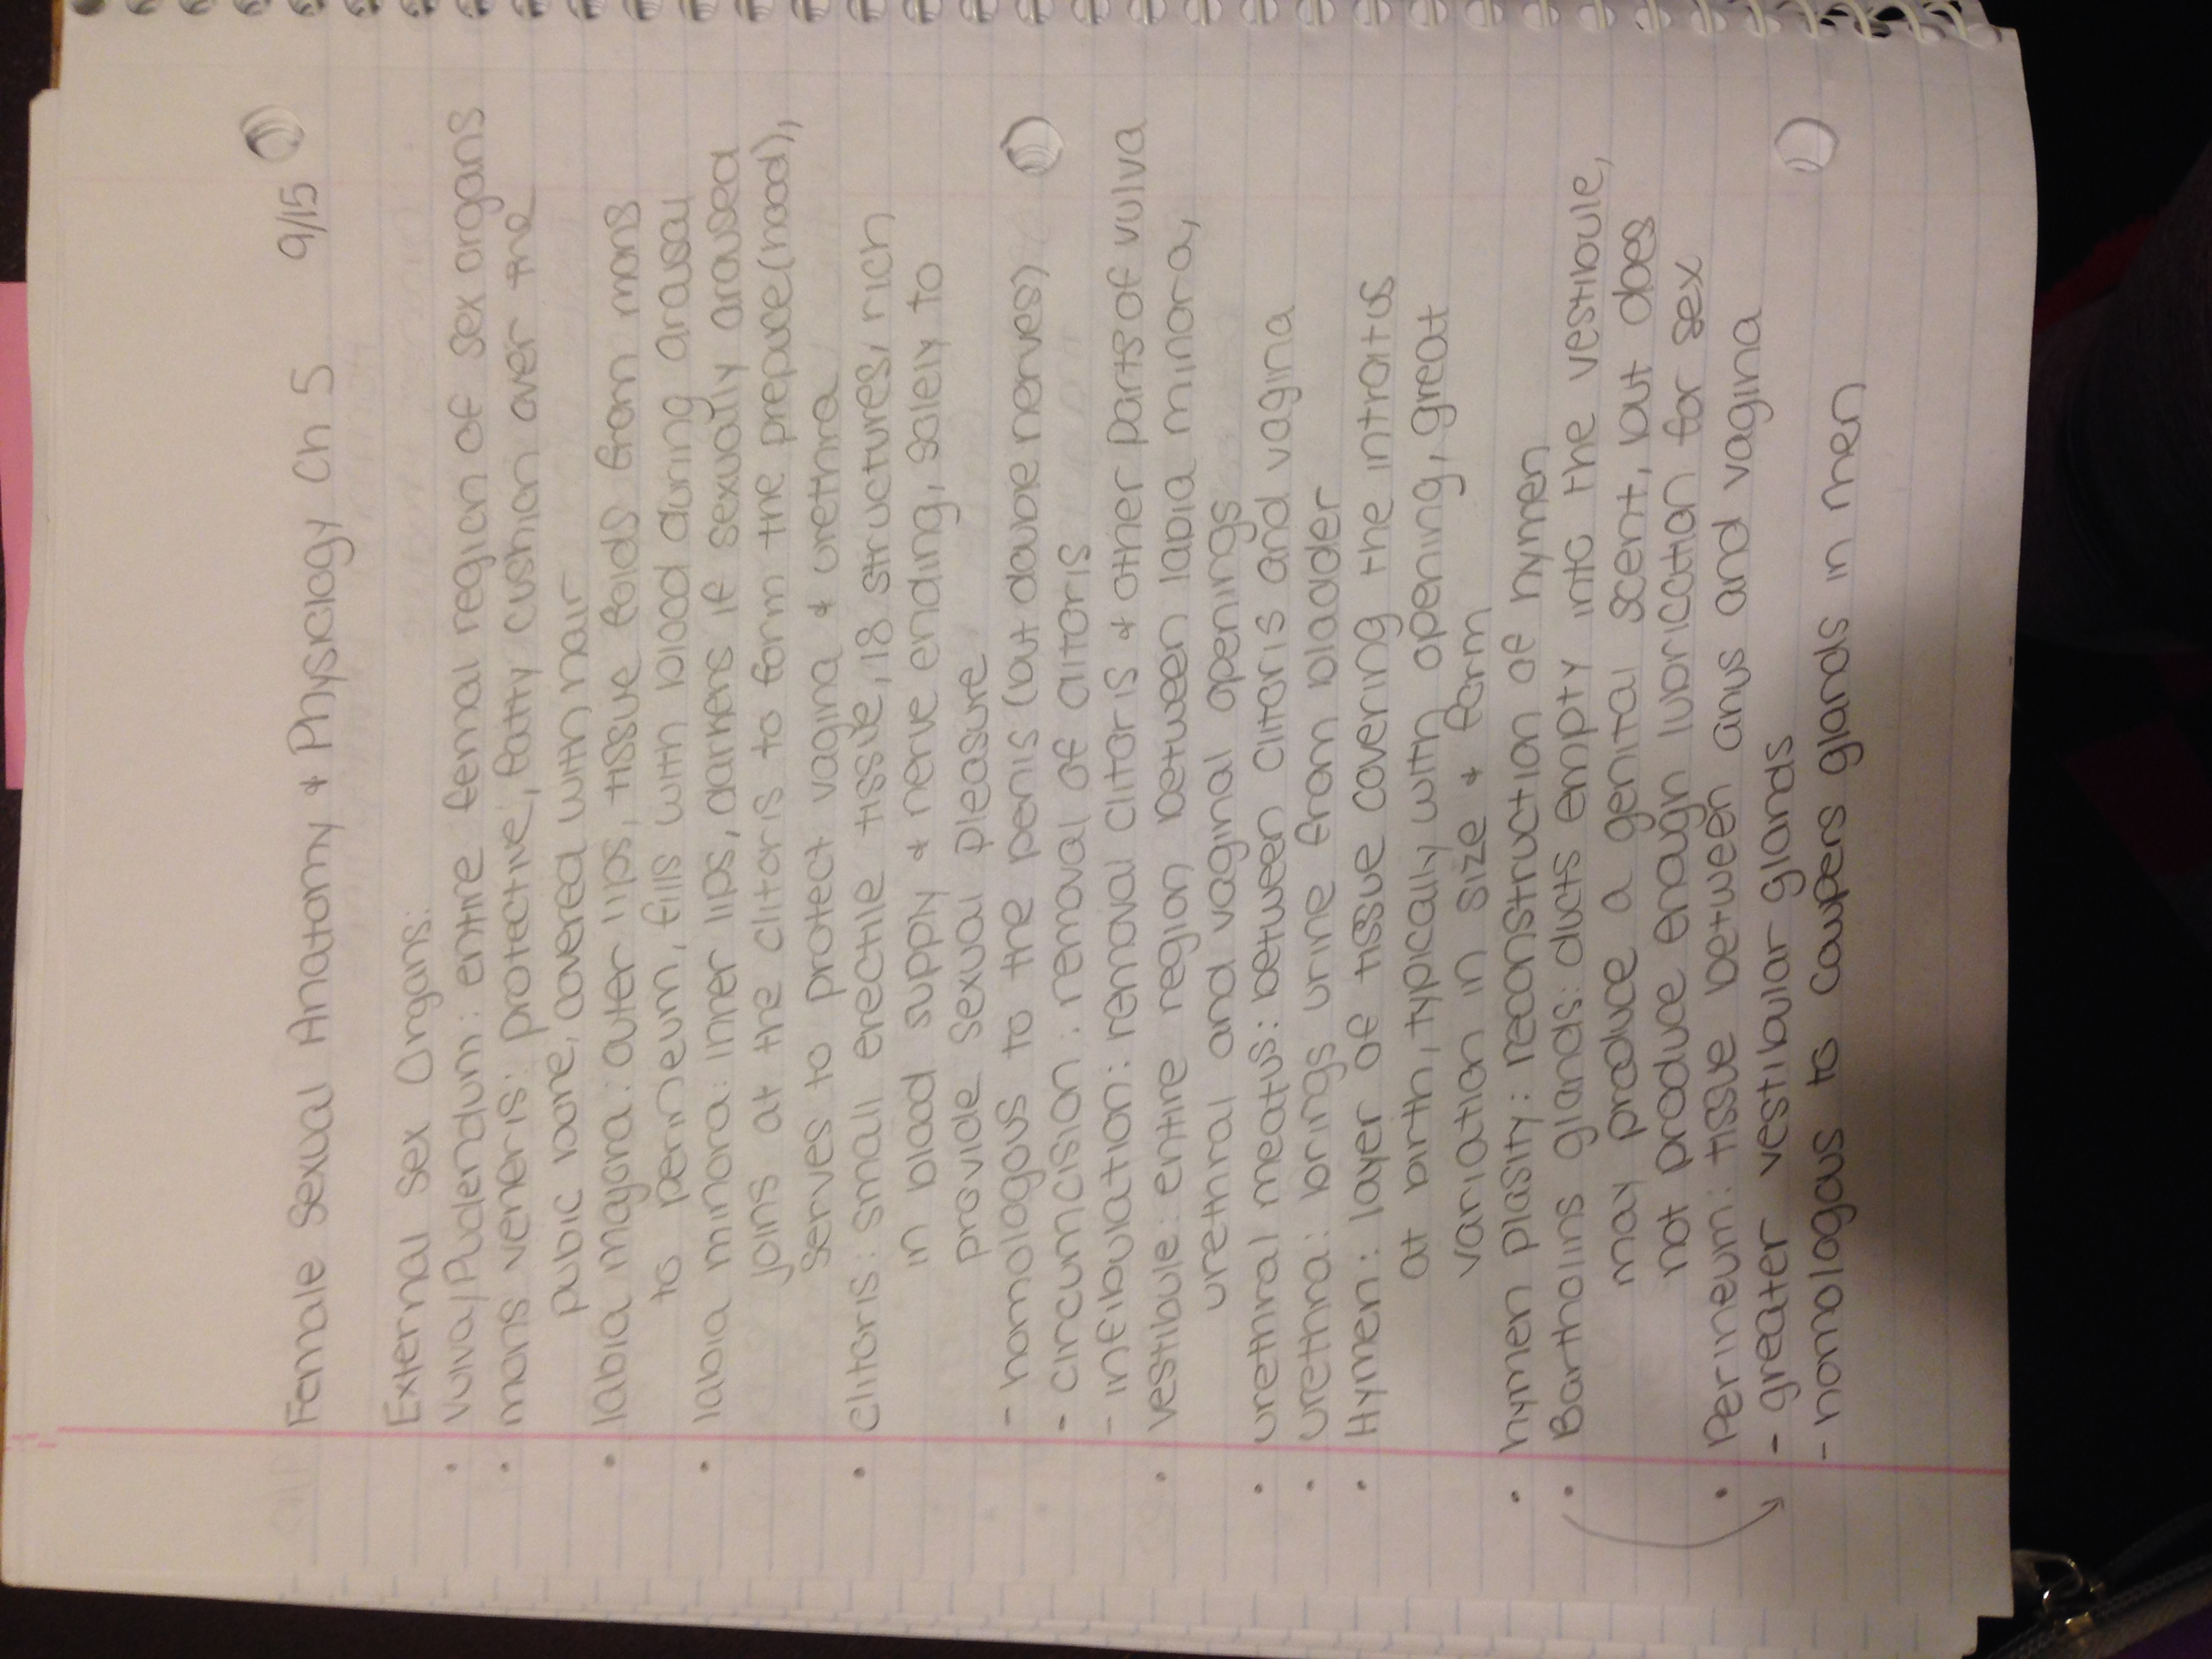 Female Sexual Anatomy & Physiology Ch 5 9/15
External Sex Organs:
• vulva/Pudendum: entire femal region of sex organs
• mons veneris: protective, fatty cushion over the
pubic bone, covered with hair
• labia mayora: outer lips, tissue folds from mons
to perineum, fills with blood during arousal
• labia minora: inner lips, darkens if sexually aroused
joins at the clitoris to form the prepuce (hood),
serves to protect vagina & urethra
• clitoris: small erectile tissue, 18 structures, rich
in blood supply & nerve ending, solely to
provide sexual pleasure
- homologous to the penis (but double nerves)
- circumcision: removal of clitoris
- infibulation: removal clitoris & other parts of vulva
• vestibule: entire region between labia minora,
urethral and vaginal openings
• urethral meatus: between clitoris and vagina
• urethra: brings urine from bladder
• Hymen: layer of tissue covering the introitus
at birth, typically with opening, great
variation in size & form
• hymen plasity: reconstruction of hymen
• Bartholins glands: ducts empty into the vestibule,
may produce a genital scent, but does
not produce enough lubrication for sex
• Perineum: tissue between anus and vagina
- greater vestibular glands
- homologous to coupers glands in men